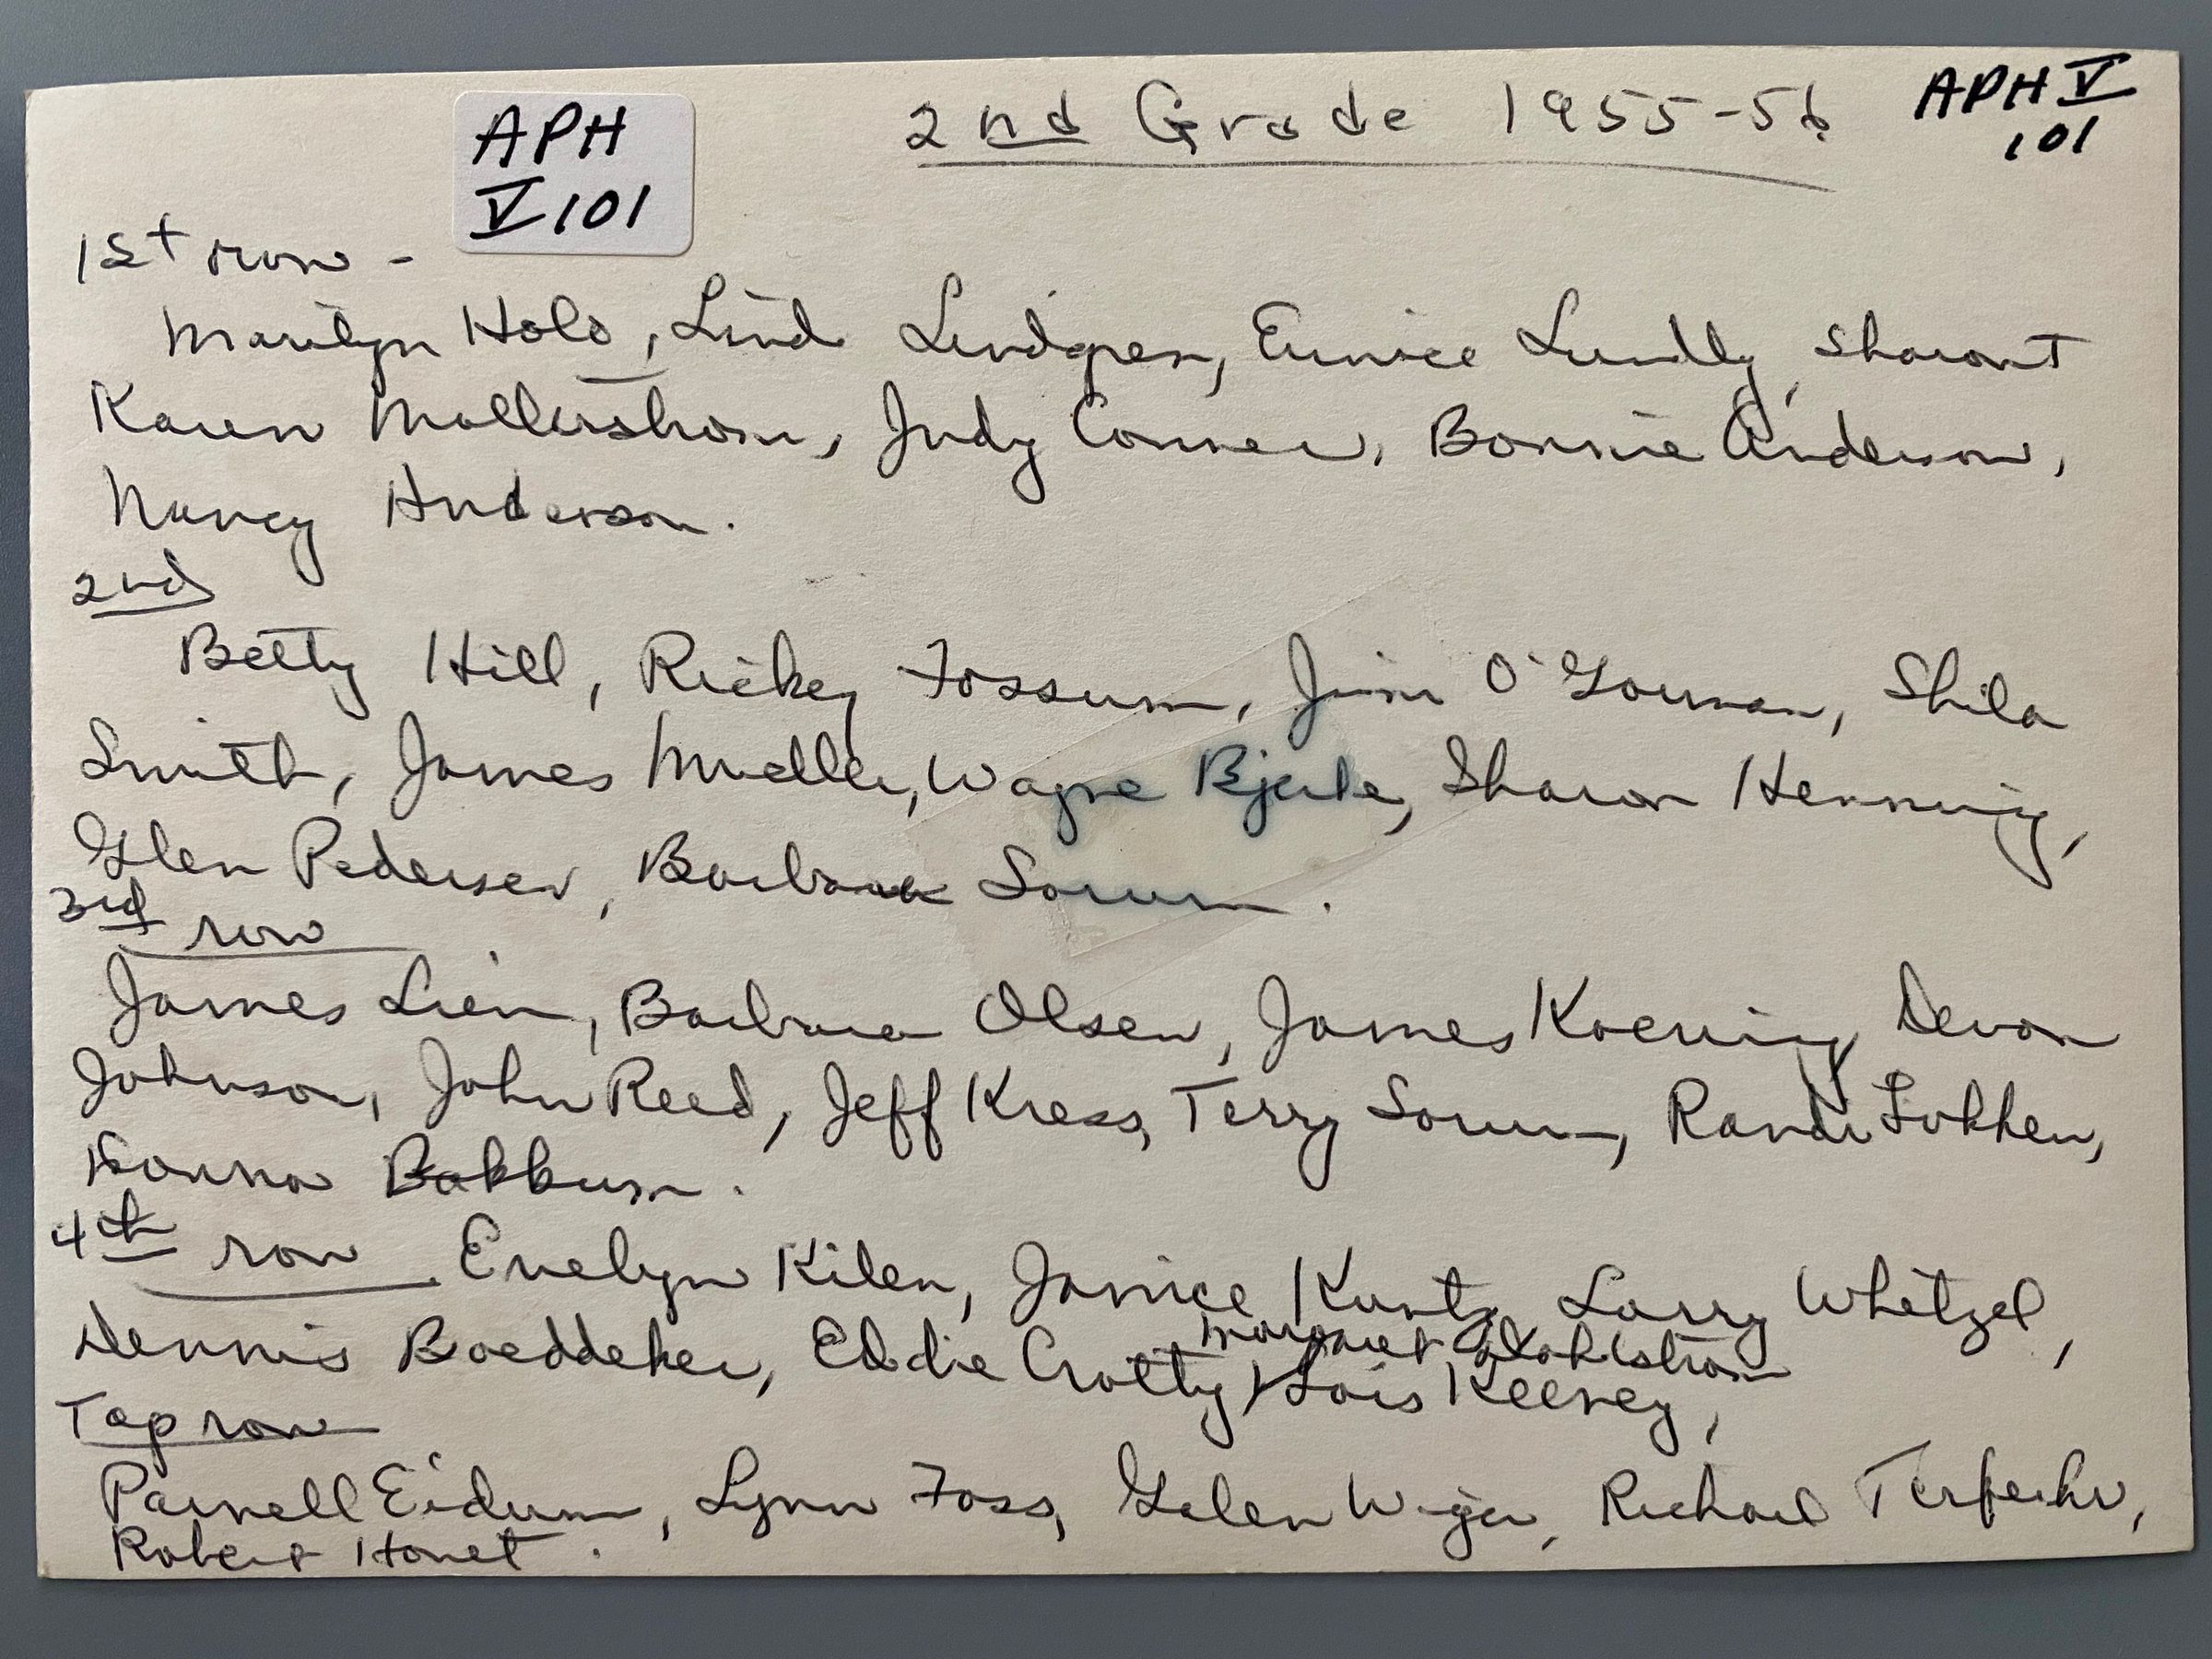 APH
V 101
2nd Grade 1955-56
APH V
101
1st row -
Marilyn Holo, Lind Lindgren, Eunice Lundby, Sharon T
Karen Mollerstrom, Judy Conner, Bonnie Anderson,
Nancy Anderson.
2nd
Betty Hill, Rickey Fossum, Jim O'Gorman, Shila
Smith, James Mueller, Wayne Bjerke, Sharon Henning,
Glen Pedersen, Barbara Sorum.
3rd row
James Lien, Barbara Olsen, James Koening, Devon
Johnson, John Reed, Jeff Kress, Terry Sorum, Randi Lokken,
Donna Bakkum.
4th row. Evelyn Kilen, Janice Kuntz, Larry Whitzel,
Margaret Wahlstrom
Dennis Boeddeker, Eddie Crotty, Lois Keeney,
Top row
Parnell Eidum, Lynn Foss, Galen Richard Terfehr,
Robert